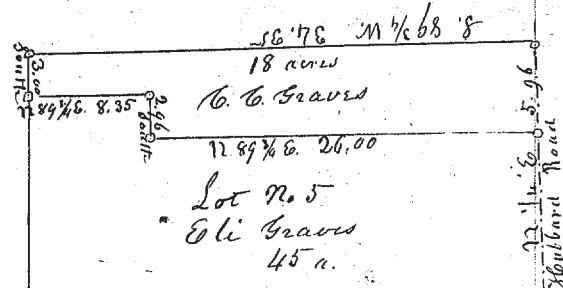 S. 89 3/4 W. 34.35
18 acres
C. C. Graves
South 3.00
N 89 3/4 E. 8.35
2.96 South
N 89 3/4 E. 26.00
N. 1/4 E. 5.96
Hubbard Road
Lot No. 5
Eli Graves
45 a.